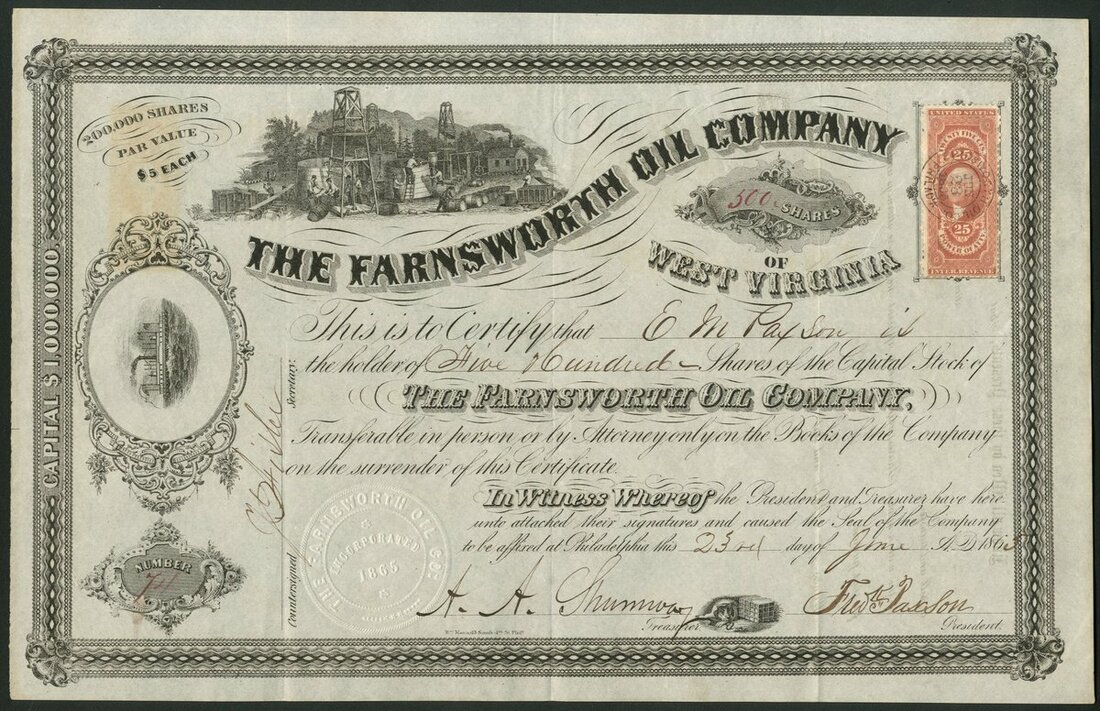 200,000 SHARES
PAR VALUE
$5 EACH
THE FARNSWORTH OIL COMPANY
500 SHARES
OF
WEST VIRGINIA
UNITED STATES
TWENTY FIVE CTS.
25
25
POWER OF ATT'Y.
INTER. REVENUE
CAPITAL $1,000,000.
This is to Certify that E M Paxson is
the holder of Five Hundred Shares of the Capital Stock of
THE FARNSWORTH OIL COMPANY,
Transferable in person or by Attorney only on the Books of the Company
on the surrender of this Certificate.
In Witness Whereof the President and Treasurer have here
unto attached their signatures and caused the Seal of the Company
to be affixed at Philadelphia this 23rd day of June A.D. 1865
Countersigned Secretary.
THE FARNSWORTH OIL CO.
INCORPORATED
1865
NUMBER
A. A. Shumway Treasurer
Fredk Paxson President.